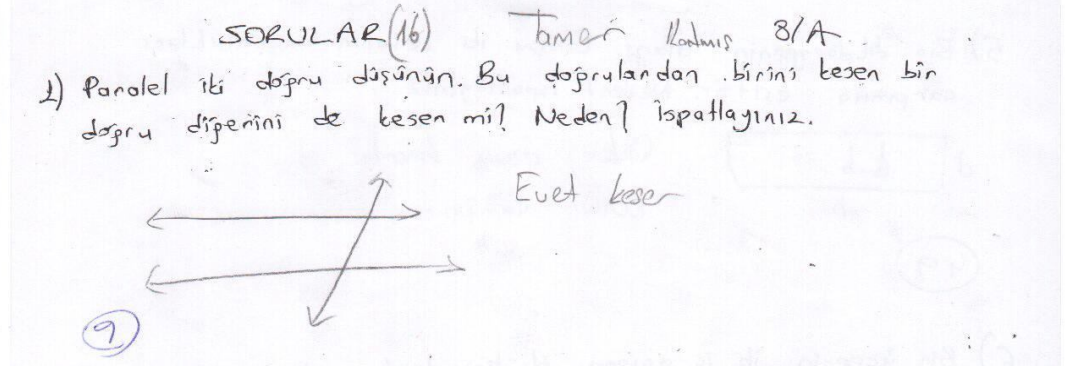 SORULAR (16) Tamer 8/A
1) Paralel iki doğru düşünün. Bu doğrulardan birini kesen bir
doğru diğerini de keser mi? Neden? İspatlayınız.
Evet keser
9